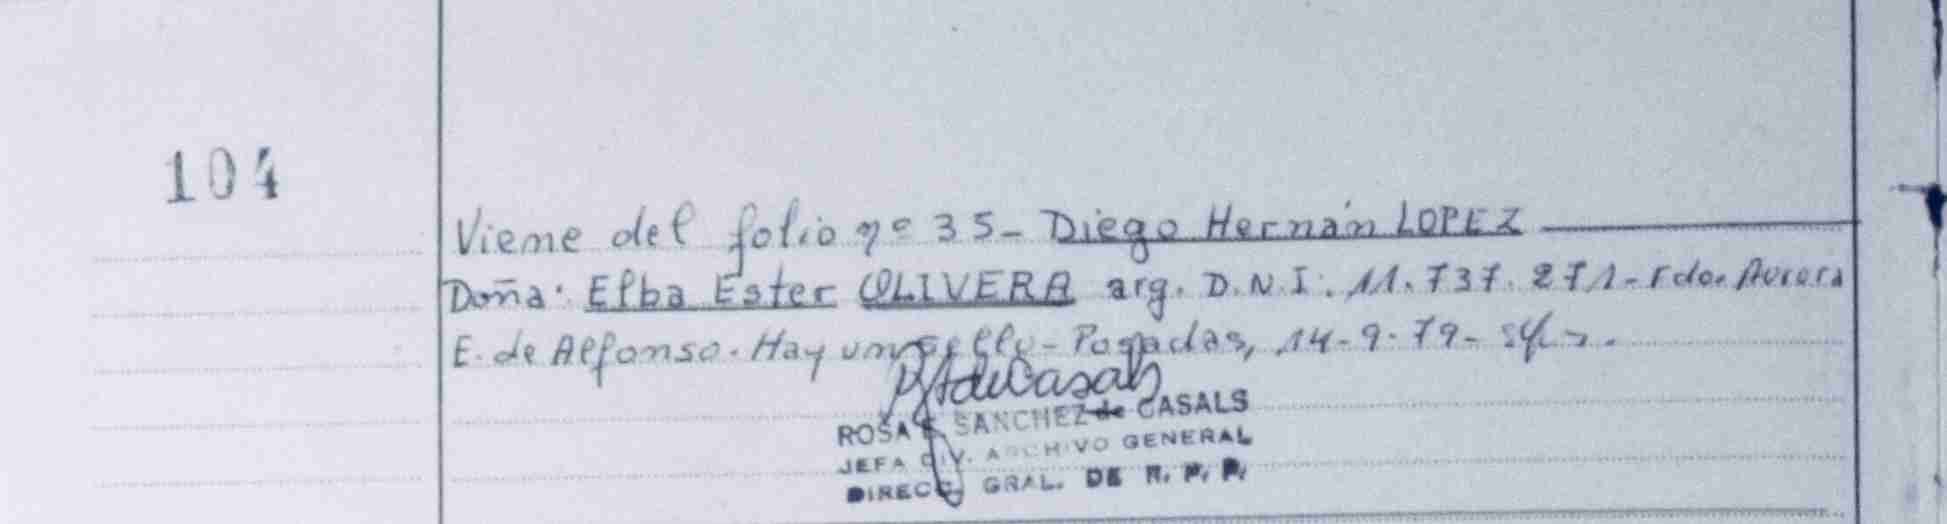 104
Viene del folio nº 35- Diego Hernán LOPEZ
Doña: Elba Ester OLIVERA arg. D.N.I. 11.737.271- Fdo. Aurora
E. de Alfonso. Hay un sello- Posadas, 14-9-79-
ROSA E. SANCHEZ de CASALS
JEFA DIV. ARCHIVO GENERAL
DIRECC. GRAL. DE R. P. P.